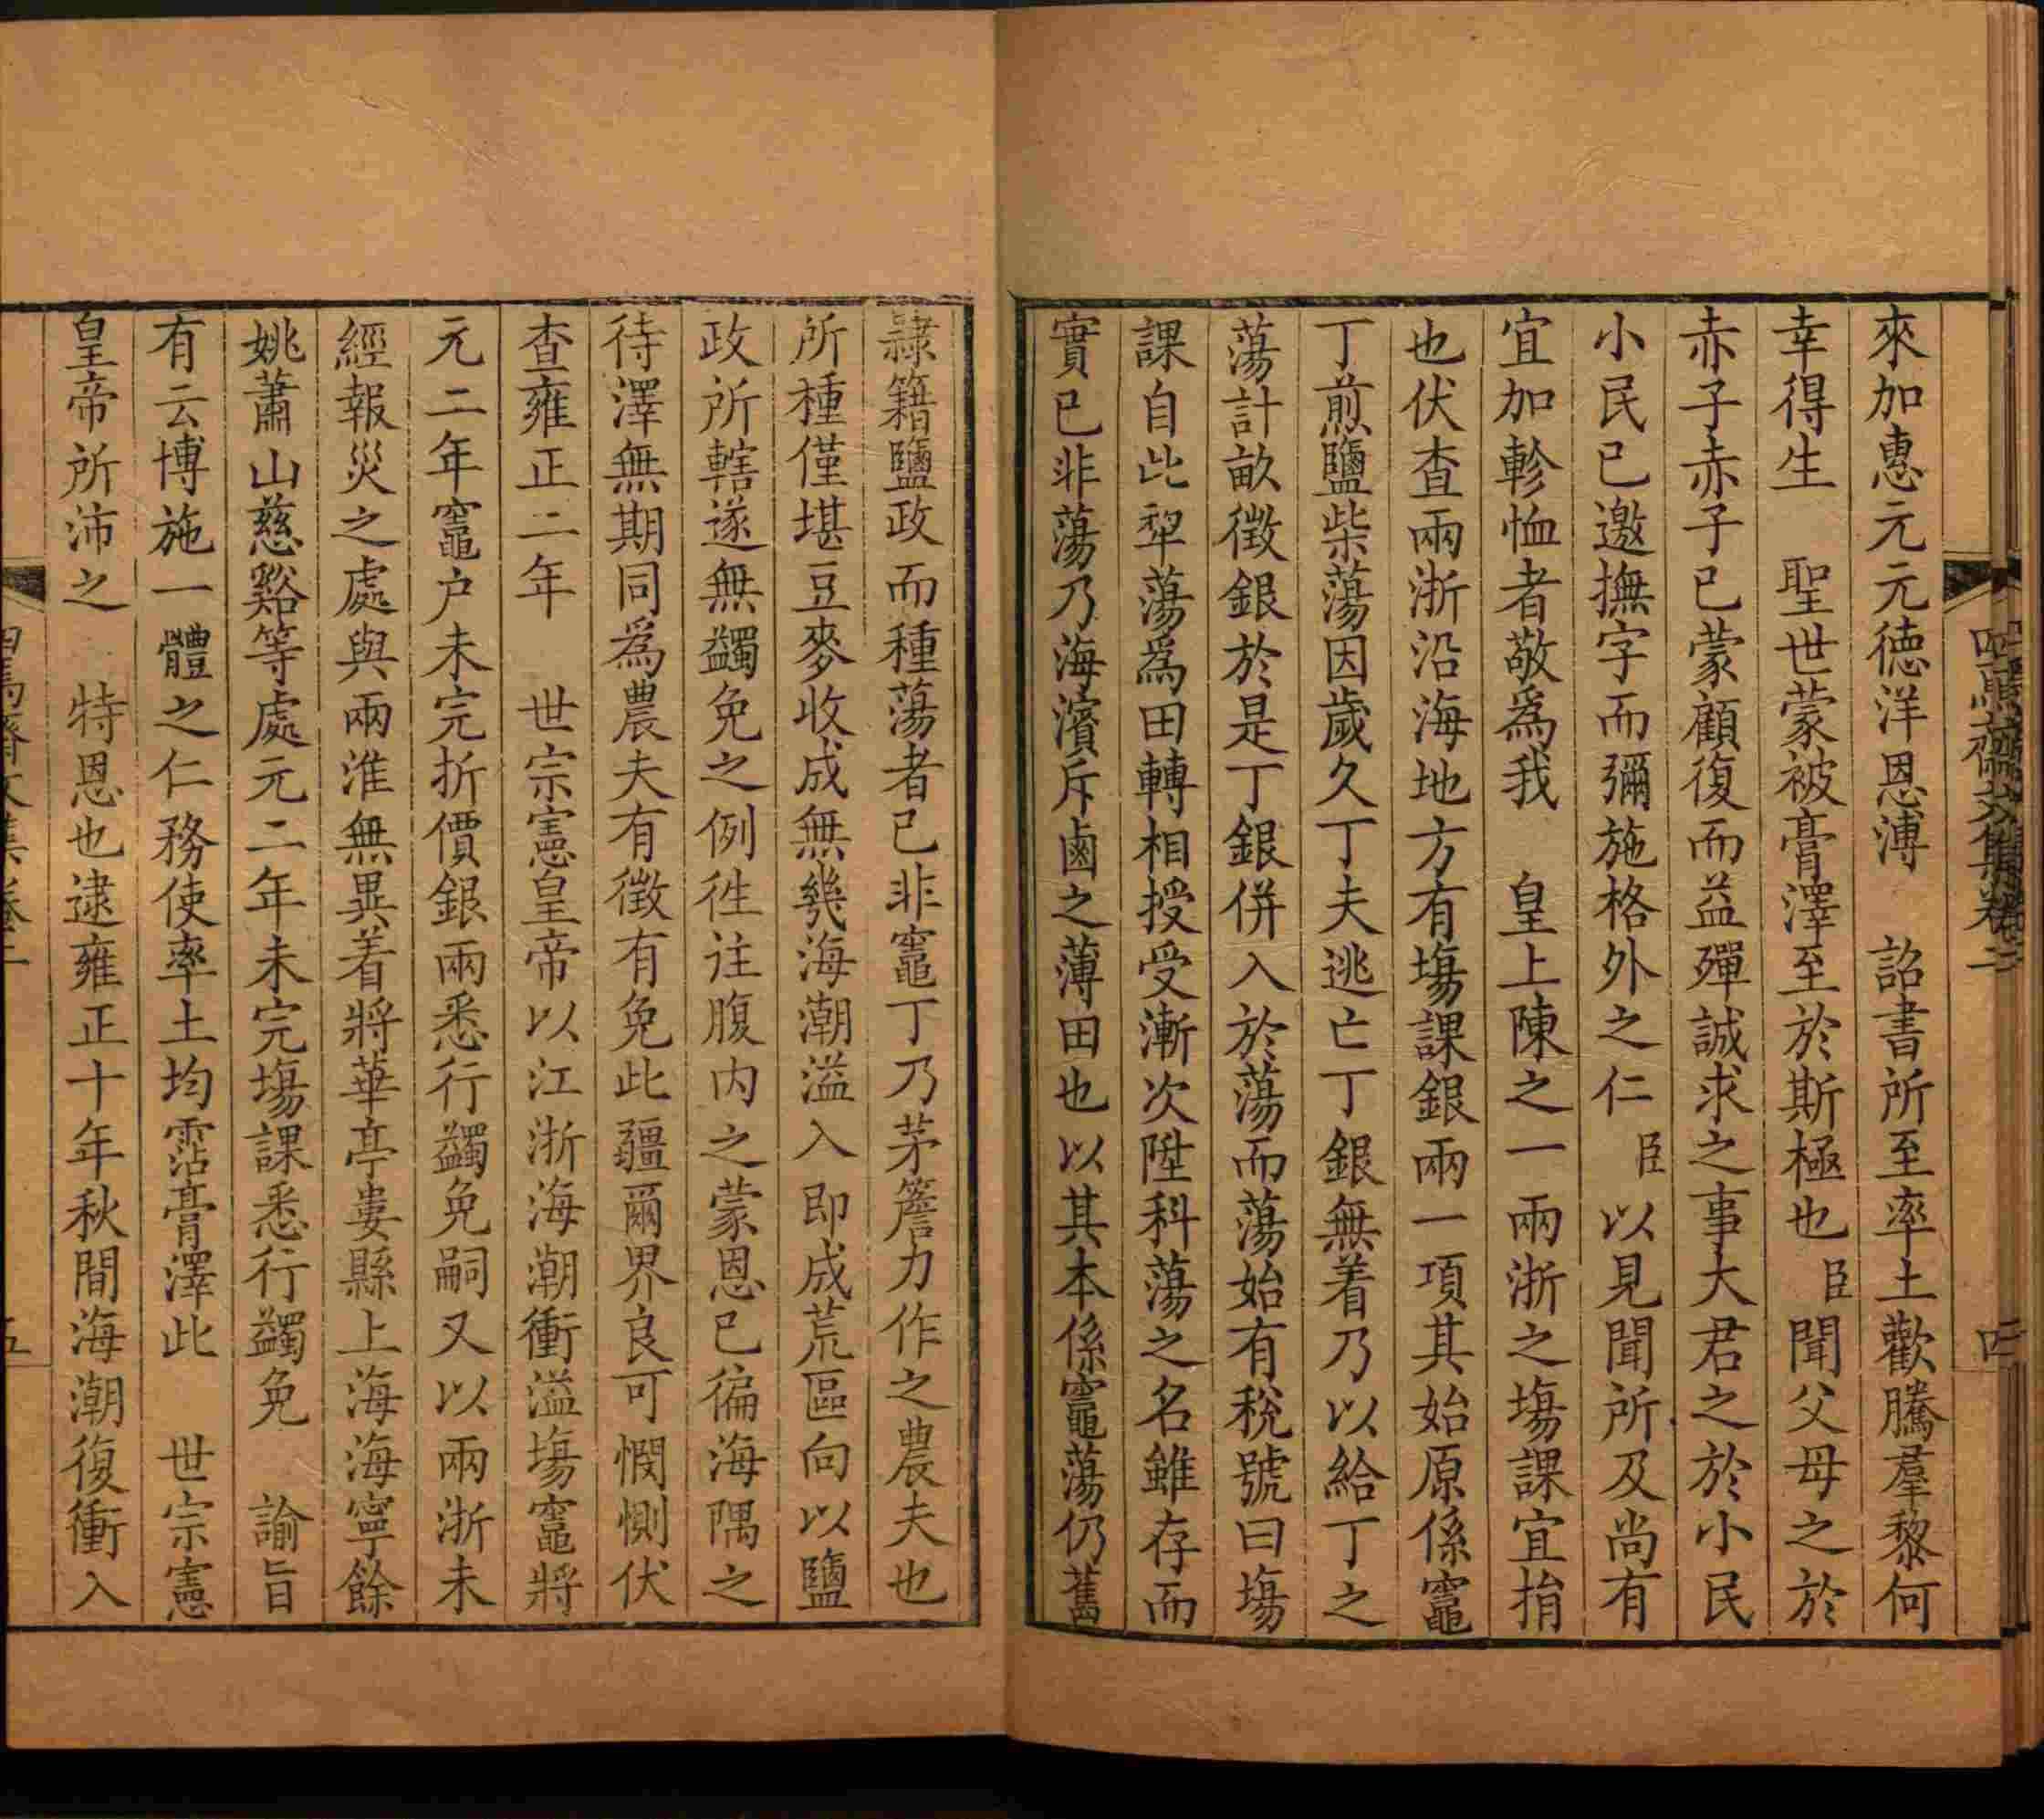 來加惠元元德洋恩溥　詔書所至率土歡騰羣黎何
幸得生　聖世蒙被膏澤至於斯極也臣聞父母之於
赤子赤子已蒙顧復而益殫誠求之事大君之於小民
小民已邀撫字而彌施格外之仁臣以見聞所及尚有
宜加軫恤者敬爲我　皇上陳之一兩浙之塲課宜捐
也伏查兩浙沿海地方有塲課銀兩一項其始原係竈
丁煎鹽柴蕩因歲久丁夫逃亡丁銀無着乃以給丁之
蕩計畝徵銀於是丁銀併入於蕩而蕩始有稅號曰塲
課自此犂蕩爲田轉相授受漸次陞科蕩之名雖存而
實已非蕩乃海濱斥鹵之薄田也以其本係竈蕩仍舊
隸籍鹽政而種蕩者已非竈丁乃茅簷力作之農夫也
所種僅堪豆麥收成無幾海潮溢入即成荒區向以鹽
政所轄遂無蠲免之例徃徃腹内之蒙恩已徧海隅之
待澤無期同爲農夫有徵有免此疆爾界良可憫惻伏
查雍正二年　世宗憲皇帝以江浙海潮衝溢塲竈將
元二年竈户未完折價銀兩悉行蠲免嗣又以兩浙未
經報災之處與兩淮無異着將華亭婁縣上海海寧餘
姚蕭山慈谿等處元二年未完塲課悉行蠲免　諭旨
有云博施一體之仁務使率土均霑膏澤此　世宗憲
皇帝所沛之　特恩也逮雍正十年秋間海潮復衝入